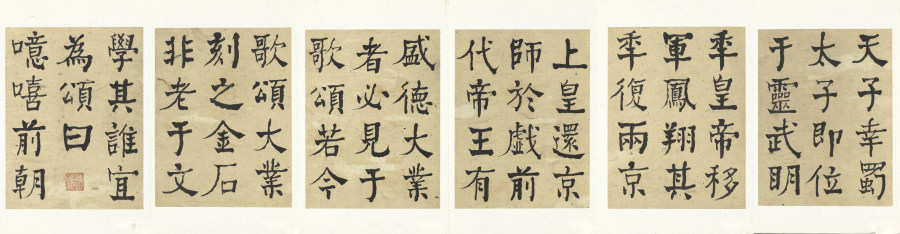 天子幸蜀
太子即位
于靈武明
秊皇帝移
軍鳳翔其
秊復兩京
上皇還京
師於戯前
代帝王有
盛德大業
者必見于
歌頌若今
歌頌大業
刻之金石
非老于文
學其誰宜
為頌曰
噫嘻前朝